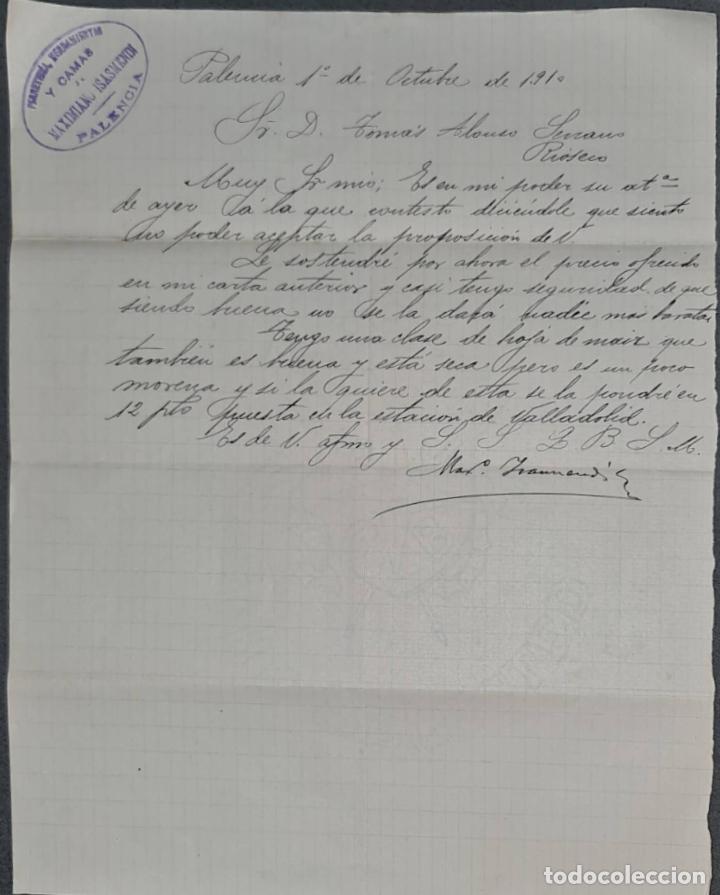 FERRETERIA, HERRAMIENTAS
Y CAMAS
DE
MAXIMIANO ISASMENDI
PALENCIA
Palencia 1º de Octubre de 1910
Sr. D. Tomás Alonso Serrano
Rioseco
Muy Sr mio; Es en mi poder su atª
de ayer á la que contesto diciéndole que siento
no poder aceptar la proposición de V.
Le sostendré por ahora el precio ofrecido
en mi carta anterior y casi tengo seguridad de que
siendo buena no se la dará nadie mas barata
Tengo una clase de hoja de maiz que
también es buena y está seca pero es un poco
morena y si la quiere de esta se la pondré en
12 pts puesta en la estación de Valladolid.
Es de V. afmo y S. S. Q B S. M.
Max. Isasmendi
todocoleccion.net